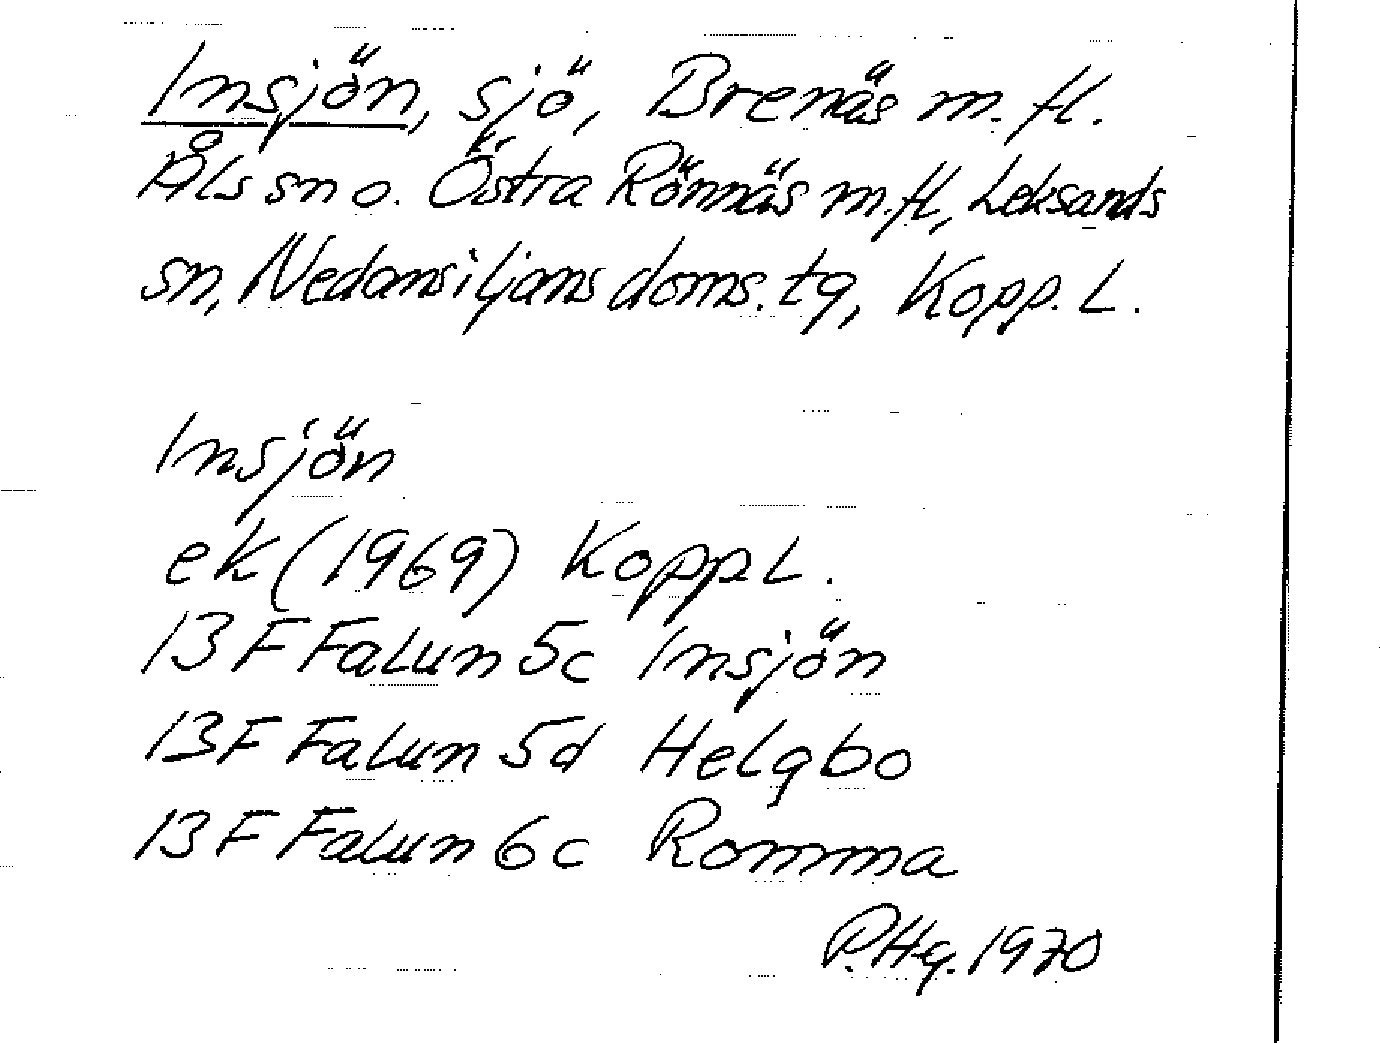 Insjön, sjö, Brenäs m.fl.
Åls sn o. Östra Rönnäs m.fl, Leksands
sn, Nedansiljans doms. tg, Kopp. L.
Insjön
ek (1969) Kopp L.
13 F Falun 5c Insjön
13F Falun 5d Helgbo
13F Falun 6c Romma
P.Hg. 1970